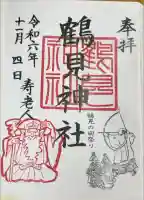 奉拝
鶴見神社
鶴見の田祭り
寿老人
令和六年
十一月四日